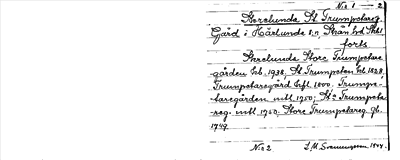 No 1 - 2
Storlunda St. Trumpetareg.
Gård i Härlunda s:n, Skån. lvd Skbl
forts
Storlunda Store Trumpetare
gården Gb. 1938, St Trumpeten Ek 1828,
Trumpetaregård Hfl. 1800. Trumpe-
taregården mtl. 1750; St:e Trumpeta-
reg. mtl. 1760. Store Trumpetareg. gb.
1749.
No 2
J. M.